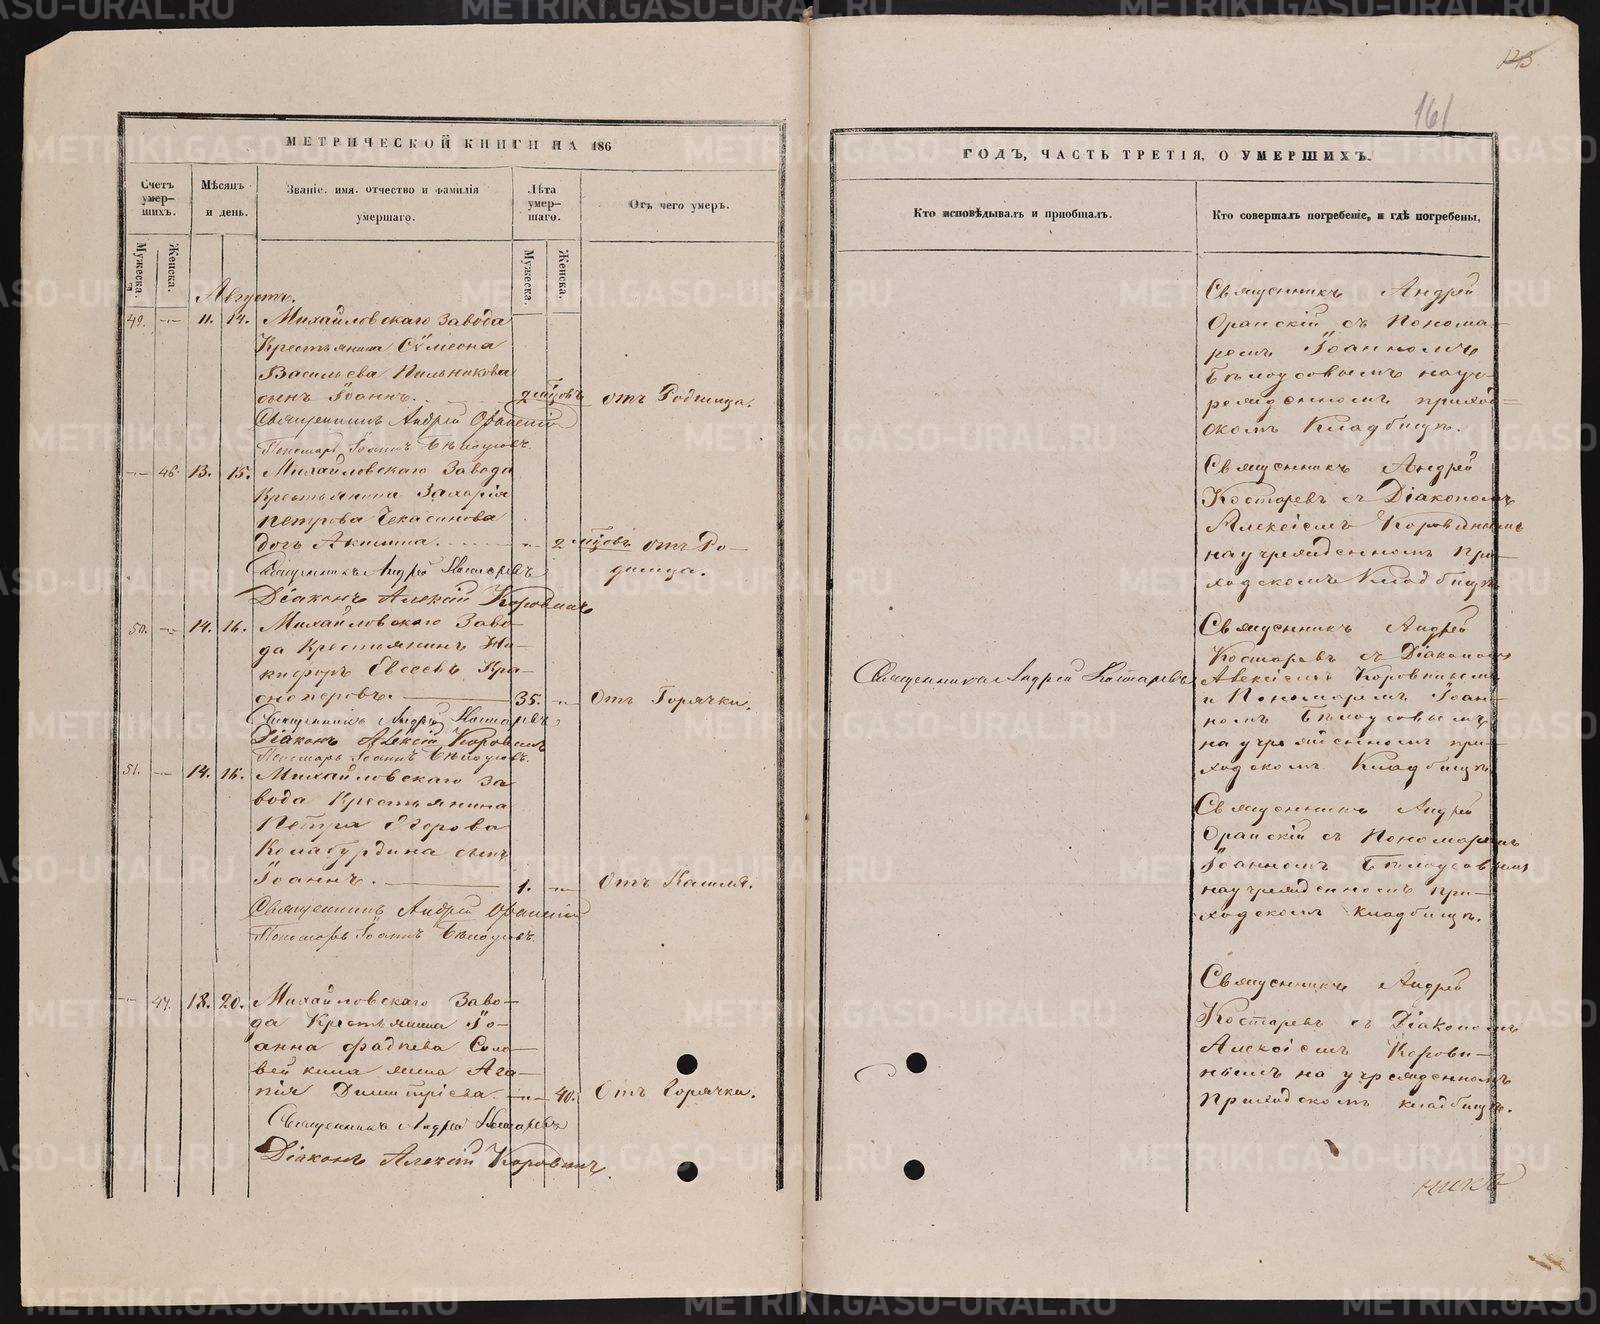 123
161
МЕТРИЧЕСКОЙ КНИГИ НА 186
Счетъ умер-шихъ.
Мѣсяцъ и день.
Званіе. имя. отчество и фамилія умершаго.
Лѣта умер-шаго.
Отъ чего умеръ.
Мужеска.
Женска.
Мужеска.
Женска.
Августъ.
49. 11. 14. Михайловскаго Завода
Крестьянина Сѵмеона
Васильева Пильникова
сынъ Іоаннъ. 2 мцовъ отъ Родимца.
Священникъ Андрей Оранскій
Пономарь Іоаннъ Бѣлоусовъ.
46. 13. 15. Михайловскаго Завода
Крестьянина Захарія
Петрова
дочь Акилина. 2 мцовъ отъ Ро-
димца.
Священникъ Андрей Костаревъ
Діаконъ Алексій Коровинъ
50. 14. 16. Михайловскаго Заво-
да Крестьянинъ Ни-
кифоръ Евсеевъ Кра-
сноперовъ. 35. Отъ Горячки.
Священникъ Андрей Костаревъ
Діаконъ Алексій Коровинъ
Пономарь Іоаннъ Бѣлоусовъ.
51. 14. 16. Михайловскаго За
вода Крестьянина
Петра Егорова
сынъ
Іоаннъ. 1. Отъ Кашля.
Священникъ Андрей Оранскій
Пономарь Іоаннъ Бѣлоусовъ.
47. 18. 20. Михайловскаго Заво-
да Крестьянина Іо-
анна Фадѣева Соло-
вейкина жена Ага-
пія Димитріева. 40. Отъ Горячки.
Священникъ Андрей Костаревъ
Діаконъ Алексій Коровинъ.
ГОДЪ, ЧАСТЬ ТРЕТІЯ, О УМЕРШИХЪ.
Кто исповѣдывалъ и пріобщалъ.
Кто совершалъ погребеніе, и гдѣ погребены.
Священникъ Андрей
Оранскій съ Понома-
ремъ Іоанномъ
Бѣлоусовымъ на уч-
режденномъ приход-
скомъ Кладбищѣ.
Священникъ Андрей
Костаревъ съ Діакономъ
Алексіемъ Коровинымъ
на учрежденномъ При-
ходскомъ Кладбищѣ
Священникъ Андрей Костаревъ
Священникъ Андрей
Костаревъ съ Діакономъ
Алексіемъ Коровинымъ
и Пономаремъ Іоан-
номъ Бѣлоусовымъ
на учрежденномъ при-
ходскомъ Кладбищѣ
Священникъ Андрей
Оранскій съ Пономаремъ
Іоанномъ Бѣлоусовымъ
на учрежденномъ при-
ходскомъ кладбищѣ.
Священникъ Андрей
Костаревъ съ Діакономъ
Алексіемъ Корови-
нымъ на учрежденномъ
Приходскомъ кладбищѣ.
никъ